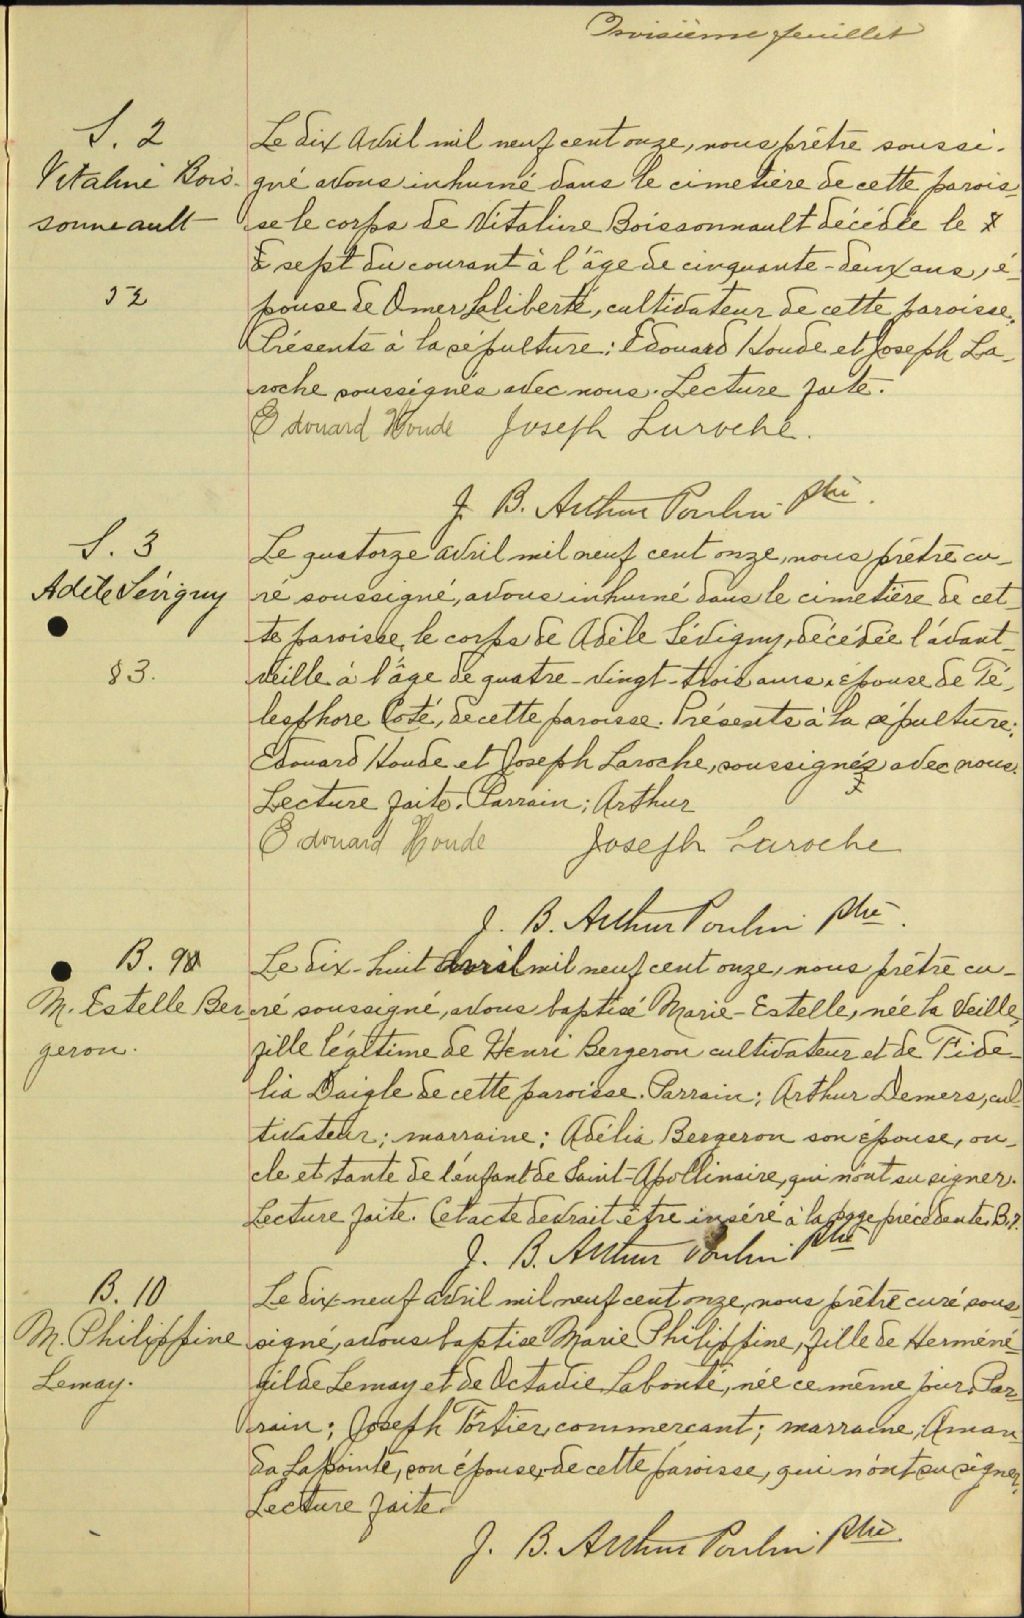 Troisième feuillet
S. 2
Vitaline Bois-
sonneault
52
Le dix avril mil neuf cent onze, nous prêtre soussi-
gné avons inhumé dans le cimetière de cette parois-
se le corps de Vitaline Boissonnault décédée le
sept du courant à l'âge de cinquante-deux ans, é-
pouse de Omer Laliberté, cultivateur de cette paroisse.
Présents à la sépulture: Edouard Houde et Joseph La-
roche soussignés avec nous. Lecture faite.
Edouard Houde Joseph Laroche.
J. B. Arthur Poulin ptre.
S. 3
Adèle Sévigny
83.
Le quatorze avril mil neuf cent onze, nous prêtre cu-
ré soussigné, avons inhumé dans le cimetière de cet-
te paroisse, le corps de Adèle Sévigny, décédée l'avant-
veille à l'âge de quatre-vingt-trois ans, épouse de Té-
lesphore Coté, de cette paroisse. Présents à la sépulture:
Edouard Houde et Joseph Laroche, soussignés avec nous.
Lecture faite. Parrain; Arthur
Edouard Houde Joseph Laroche
J. B. Arthur Poulin ptre.
B. 9
M. Estelle Ber-
geron.
Le dix-huit avril mil neuf cent onze, nous prêtre cu-
ré soussigné, avons baptisé Marie-Estelle, née la veille,
fille légitime de Henri Bergeron cultivateur et de Fide-
lia Daigle de cette paroisse. Parrain; Arthur Demers, cul-
tivateur; marraine; Adélia Bergeron son épouse, on-
cle et tante de l'enfant de Saint-Apollinaire, qui n'ont su signer.
Lecture faite. Cet acte devrait être inséré à la page précédente. B.9.
J. B. Arthur Poulin ptre
B. 10
M. Philippine
Lemay.
Le dix-neuf avril mil neuf cent onze, nous prêtre curé sous-
signé, avons baptisé Marie Philippine, fille de Herméné-
gilde Lemay et de Octavie Labonté, née ce même jour. Par-
rain; Joseph Fortier, commercant; marraine; Aman-
da Lapointe, son épouse, de cette paroisse, qui n'ont su signer.
Lecture faite.
J. B. Arthur Poulin ptre